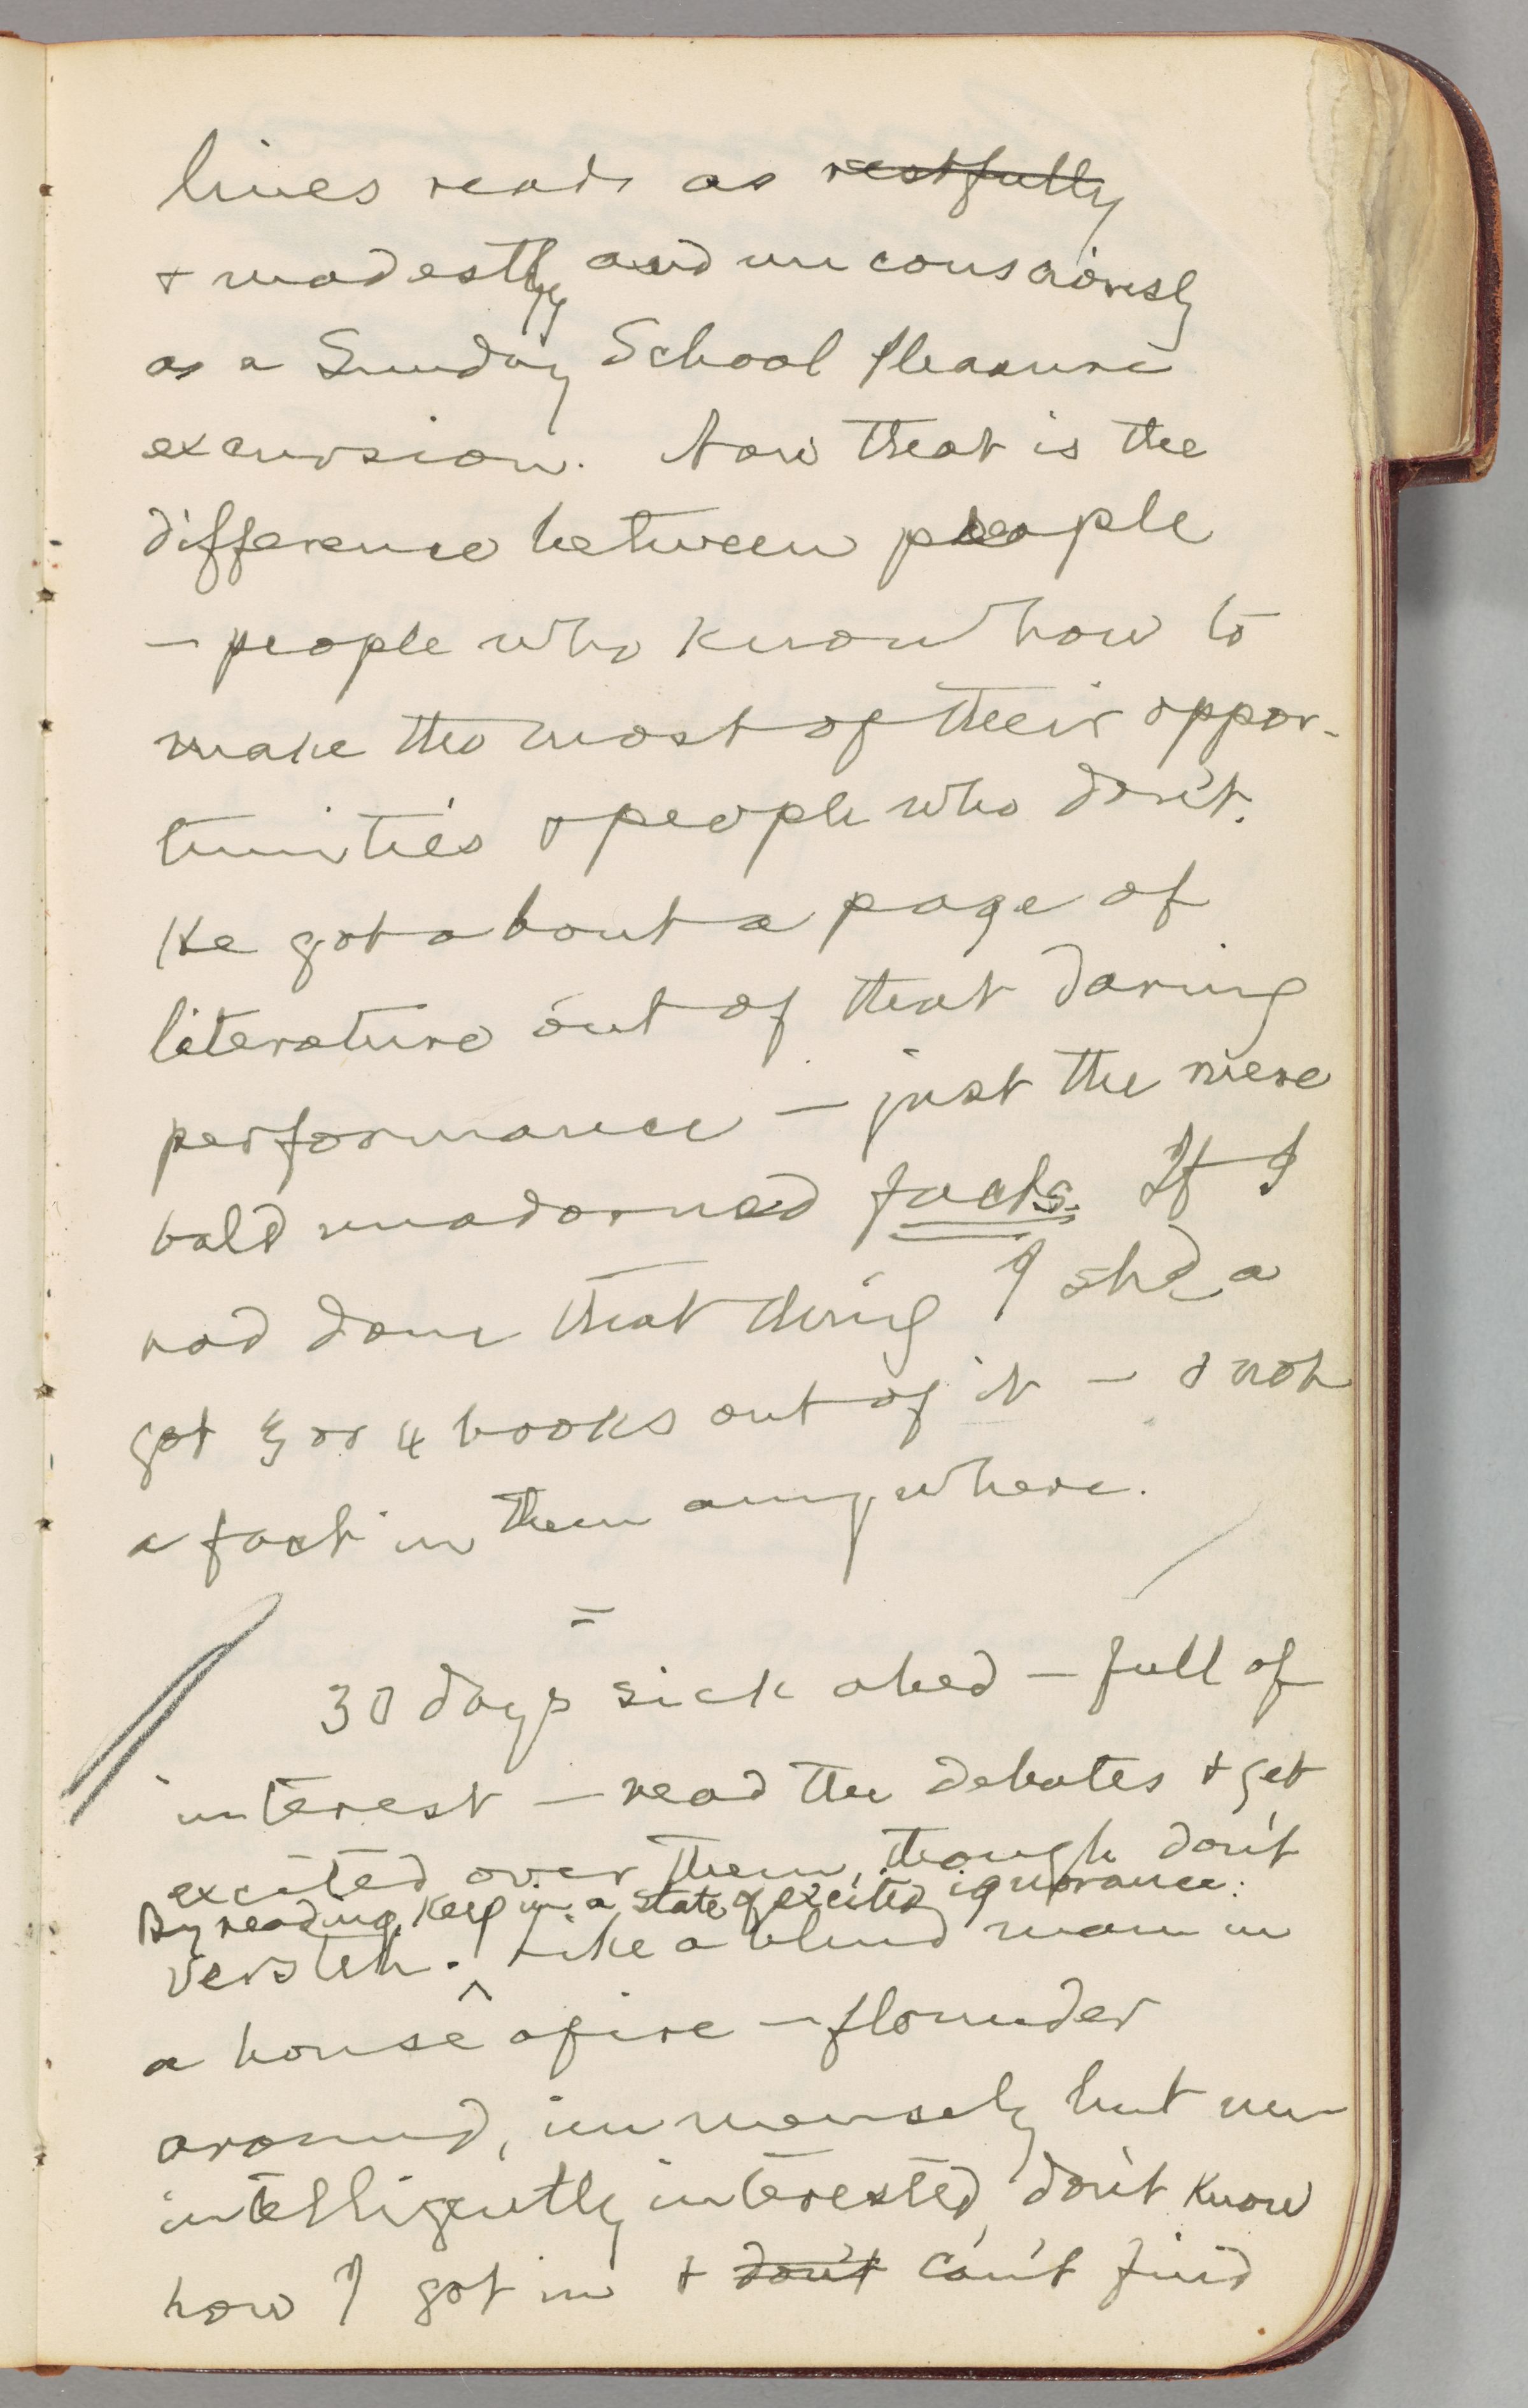 lines reads as restfully
& modestly and unconsciously
as a Sunday School pleasure
excursion. Now that is the
difference between people
— people who know how to
make the most of their oppor-
tunities & people who don't.
He got about a page of
literature out of that daring
performance — just the mere
bald unadorned facts. If I
had done that thing I shd a
got 3 or 4 books out of it — & not
a fact in them anywhere.
=
30 days sick abed — full of
interest — read the debates & get
excited over them, though don't
By reading keep in a state of excited ignorance.
versteh. Like a blind man in
a house afire — flounder
around, immensely but un-
intelligently interested, don't know
how I got in & don't can't find